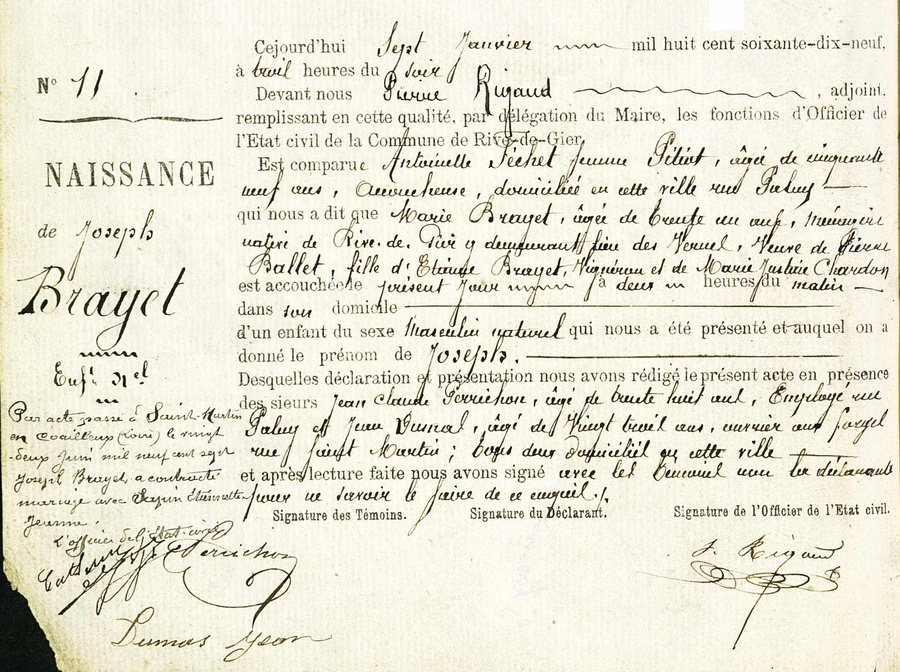 N° 11
NAISSANCE
de Joseph
Brayet
Enft Nel
Par acte passé à Saint-Martin
en Coailleux (Loire) le vingt
-deux Juin mil neuf cent sept
Joseph Brayet a contracté
mariage avec Etiennette
Jeanne.
L'officier de l'Etat-civil
Cejourd'hui Sept Janvier mil huit cent soixante-dix-neuf,
à trois heures du soir
Devant nous Pierre Rigaud, adjoint.
remplissant en cette qualité, par délégation du Maire, les fonctions d'Officier de
l'Etat civil de la Commune de Rive-de-Gier,
Est comparue Antoinette Séchet femme Pitiot, âgée de cinquante
neuf ans, accoucheuse, domiciliée en cette ville rue Paluy
qui nous a dit que Marie Brayet, âgée de trente un ans, ménagère
native de Rive-de-Gier y demeurant rue des Vernes, Veuve de Pierre
Ballet, fille d'Etienne Brayet, Vigneron et de Marie Justine Chardon
est accouchée le présent jour à deux heures du matin
dans son domicile
d'un enfant du sexe Masculin naturel qui nous a été présenté et auquel on a
donné le prénom de Joseph.
Desquelles déclaration et présentation nous avons rédigé le présent acte en présence
des sieurs Jean Claude Perrichon, âgé de trente huit ans, Employé rue
Paluy et Jean Dumas, âgé de Vingt trois ans, ouvrier aux forges
rue Saint Martin; tous deux domiciliés en cette ville
et après lecture faite nous avons signé avec les témoins non la déclarante
pour ne savoir le faire de ce enquise.
Signature des Témoins. Signature du Déclarant. Signature de l'Officier de l'Etat civil.
Perrichon
P. Rigaud
Dumas Jean